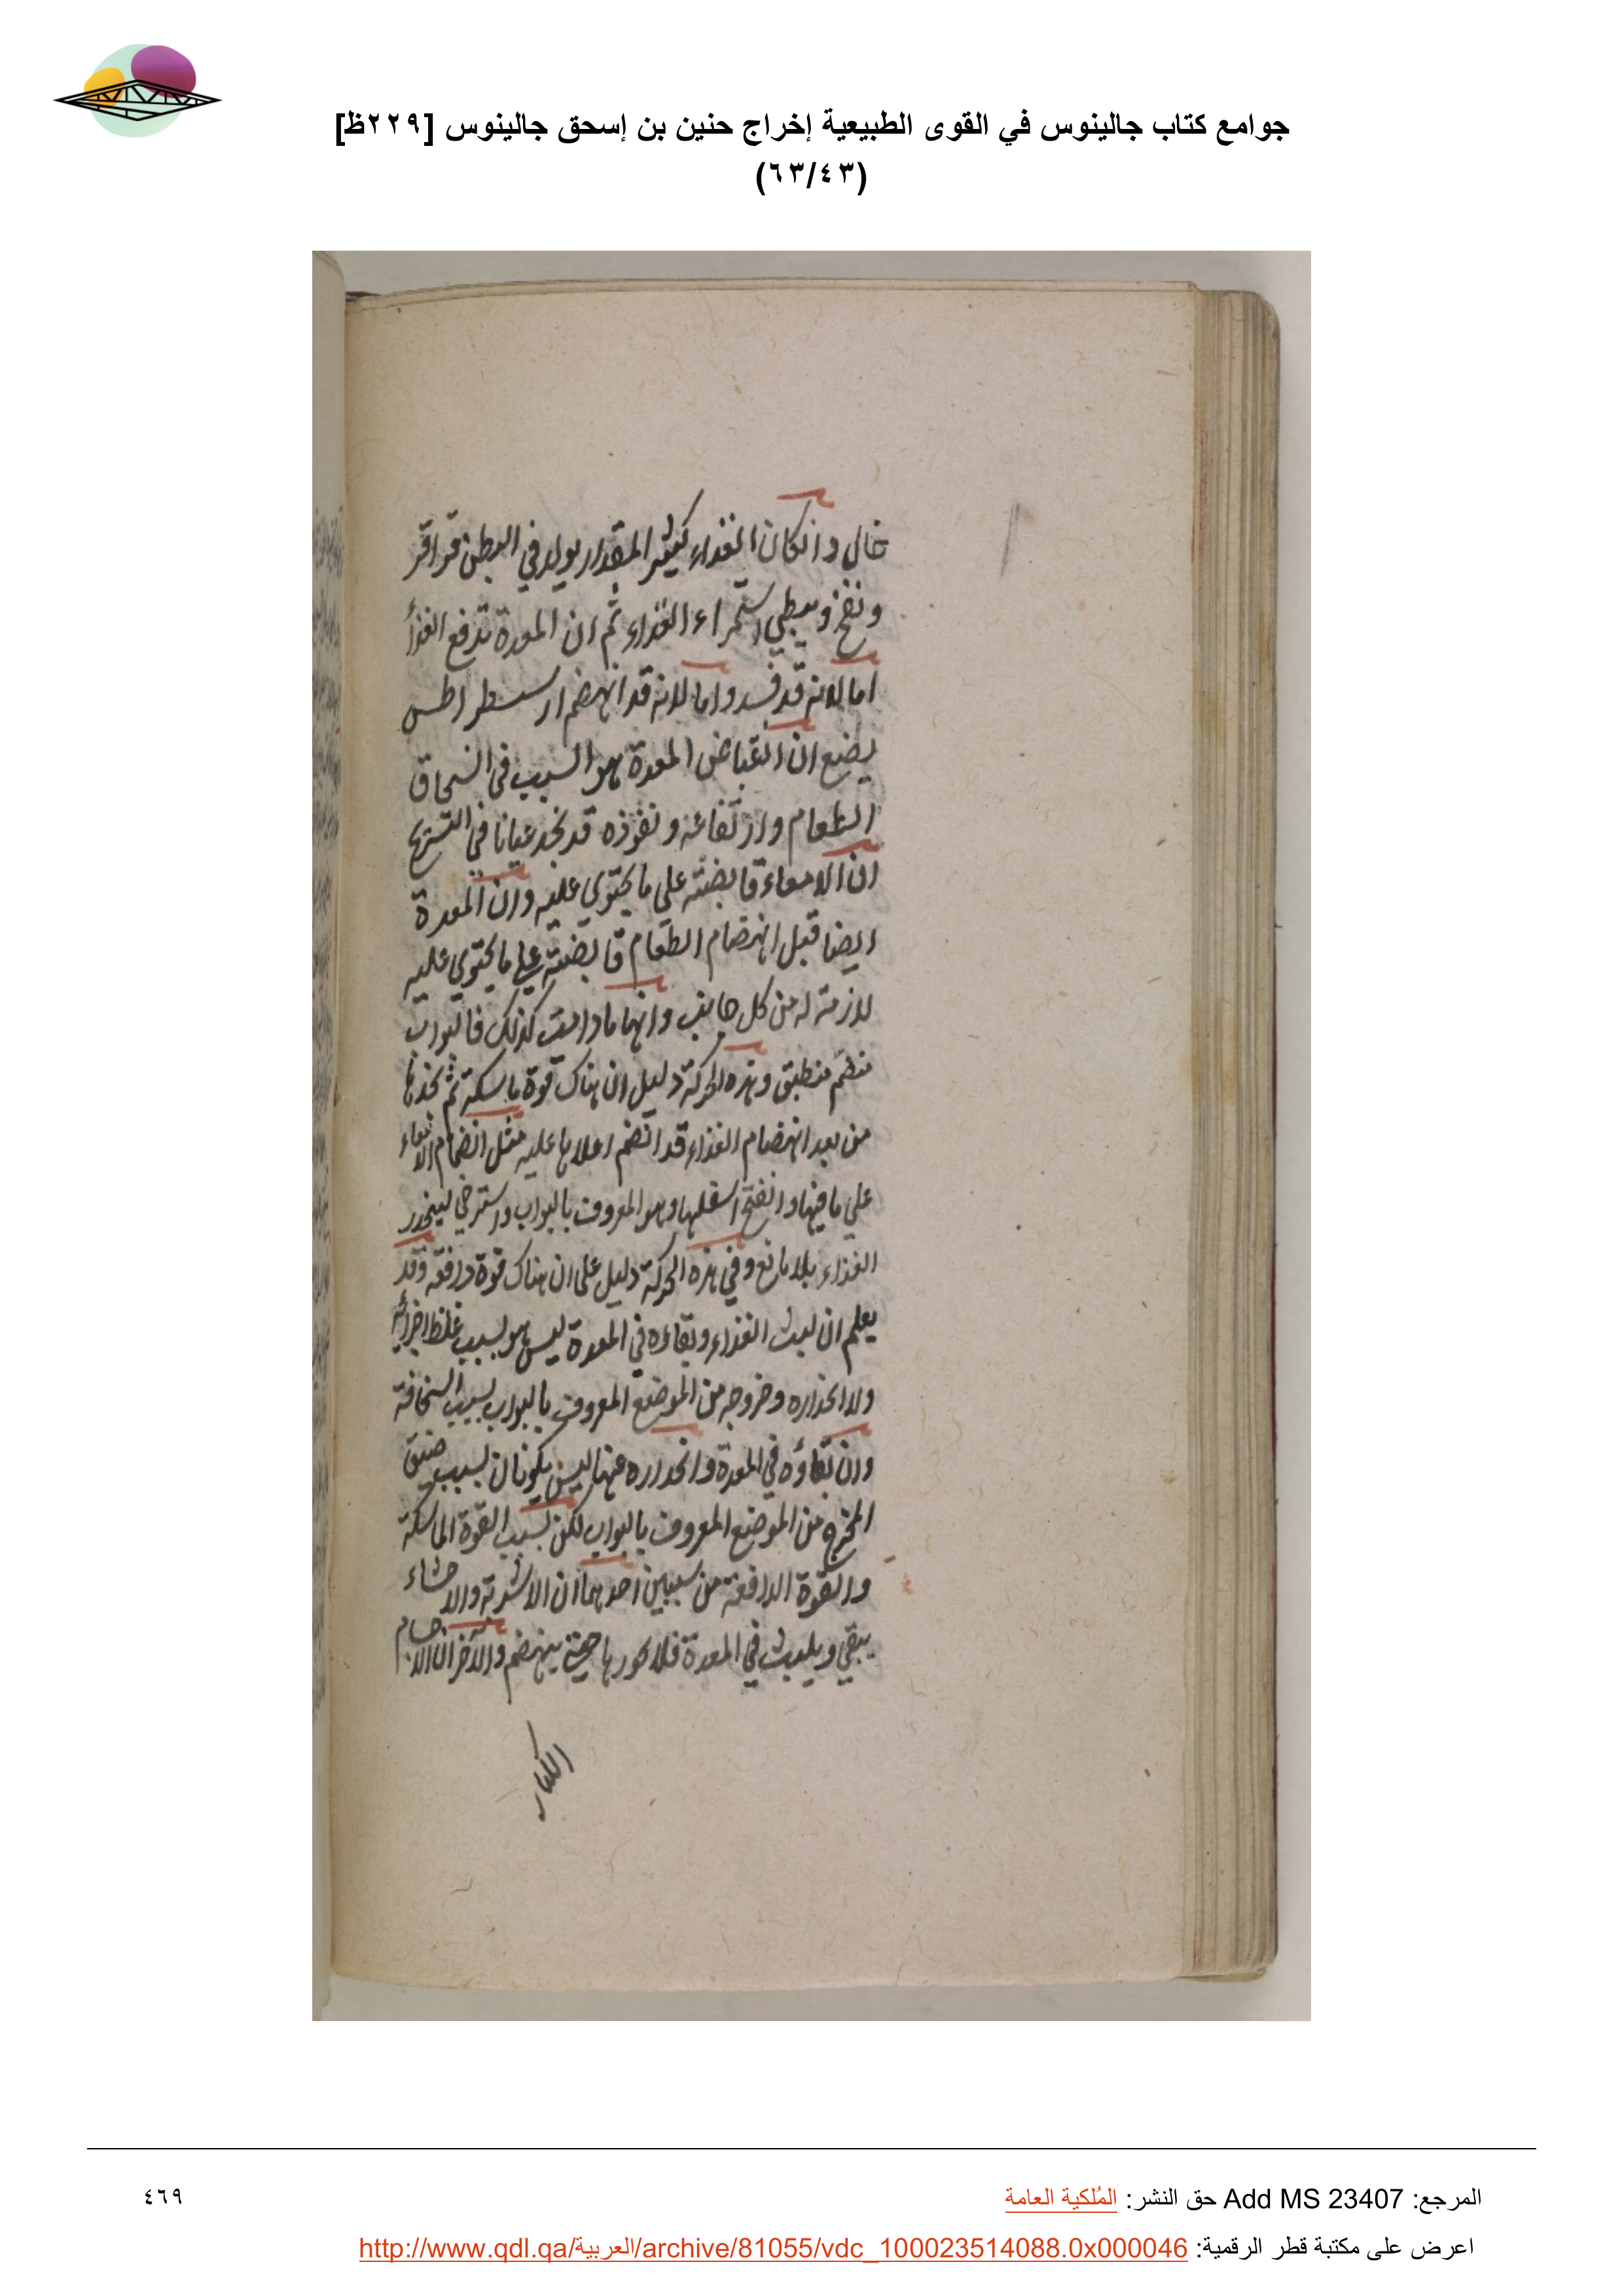 جوامع كتاب جالينوس في القوى الطبيعية إخراج حنين بن إسحق جالينوس [٢٢٩ظ]
(٦٣/٤٣)
خال وانكان الغذاء كثير المقدار يولد في البطن قراقر
ونفخ ويبطي استمراء الغذاء ثم ان المعدة تدفع الغذأ
اما لانه قد فسد واما لانه قد انهضم ارسسطراطس
يضع ان انقباض المعدة هو السبب في انسحاق
الطعام وارتفاعه ونفوذه قد نجد عيانا في التشريح
ان الامعاء قابضة على ما يحتوي عليه وان المعدة
ايضا قبل انهضام الطعام قابضة على ما يحتوي عليه
لازمة له من كل جانب وانها مادامت كذلك فالبواب
منضم منطبق وهذه الحركة دليل ان هناك قوة ماسكة ثم نجدها
من بعد انهضام الغذاء قد انضم اعلاها عليه مثل انضمام الامعاء
على ما فيها وانفتح اسفلها وهو المعروف بالبواب واسترخي لينحدر
الغذاء بلا مانع وفي هذه الحركة دليل على ان هناك قوة دافعة وقد
يعلم ان لبث الغذاء وبقاءه في المعدة ليس هو بسبب غلظ اجزائه
ولا انحداره وخروجه من الموضع المعروف بالبواب بسبب السخافة
وان بقاؤه في المعدة وانحداره عنها ليس يكونان بسبب ضيق
المخرج من الموضع المعروف بالبواب لكن بسبب القوة الماسكة
والقوة الدافعة من سببين احدهما ان الاشربة والاحشاء
يبقي ويلبث في المعدة فلا حتى ينهضم والآخر ان الاجسام
الكبار
المرجع: Add MS 23407 حق النشر: المُلكية العامة
٤٦٩
اعرض على مكتبة قطر الرقمية: http://www.qdl.qa/العربية/archive/81055/vdc_100023514088.0x000046